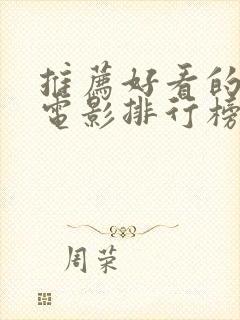 推薦好看的
電影排行榜
周荣